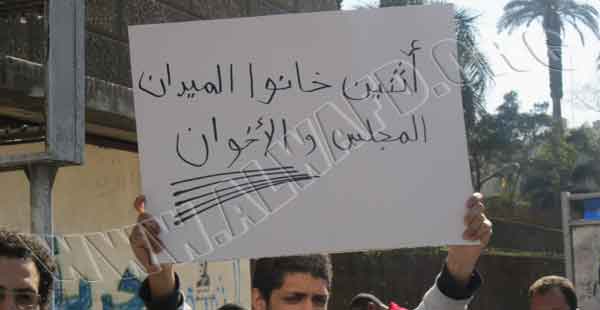 أثنين خانوا الميدان
المجلس والأخوان
WWW.ALWAFD.ORG